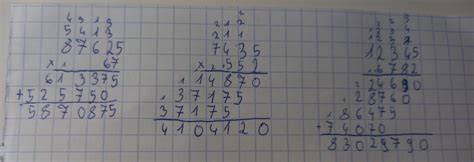 5413
87625
x 67
613375
+525750
5870875
212
211
7435
x 552
14870
37175
37175
4104120
12345
6782
24690
86475
+74070
83029790